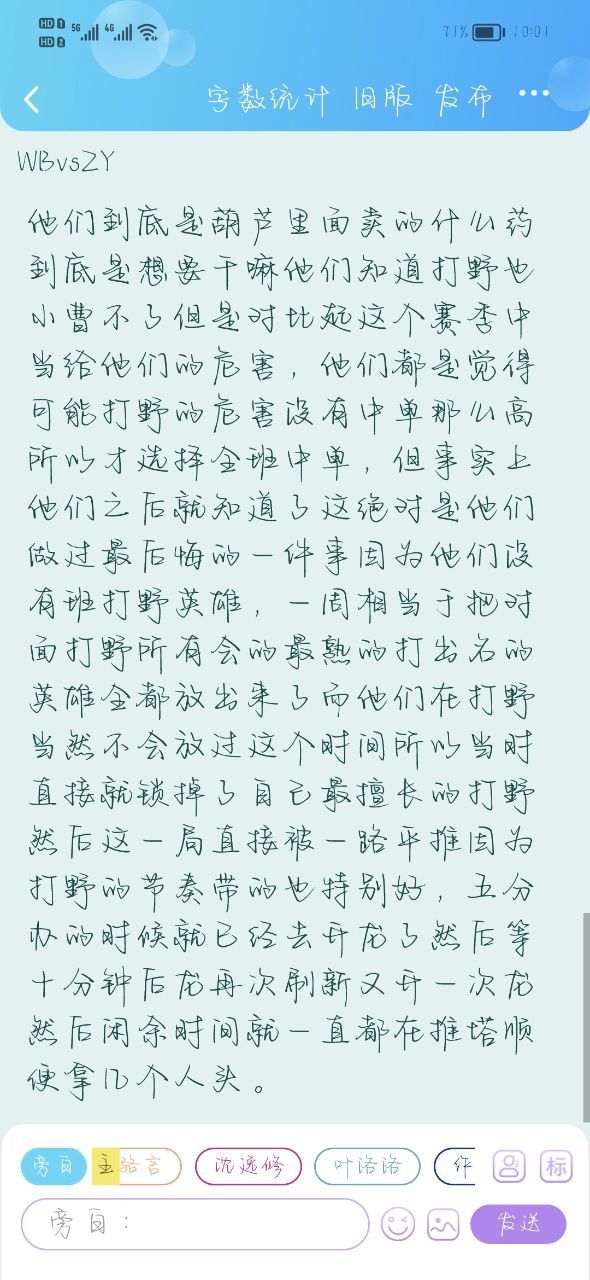 HD 1 5G 4G
HD 2
71% 10:01
字数统计 旧版 发布
WBvsZY
他们到底是葫芦里面卖的什么药
到底是想要干嘛他们知道打野也
小曹不了但是对比起这个赛季中
当给他们的危害，他们都是觉得
可能打野的危害没有中单那么高
所以才选择全班中单，但事实上
他们之后就知道了这绝对是他们
做过最后悔的一件事因为他们没
有班打野英雄，一周相当于把对
面打野所有会的最熟的打出名的
英雄全都放出来了而他们在打野
当然不会放过这个时间所以当时
直接就锁掉了自己最擅长的打野
然后这一局直接被一路平推因为
打野的节奏带的也特别好，五分
办的时候就已经去开龙了然后等
十分钟后龙再次刷新又开一次龙
然后闲余时间就一直都在推塔顺
便拿几个人头。
旁白 主 骆言 沈逸修 叶洛洛 作 标
旁白： 发送